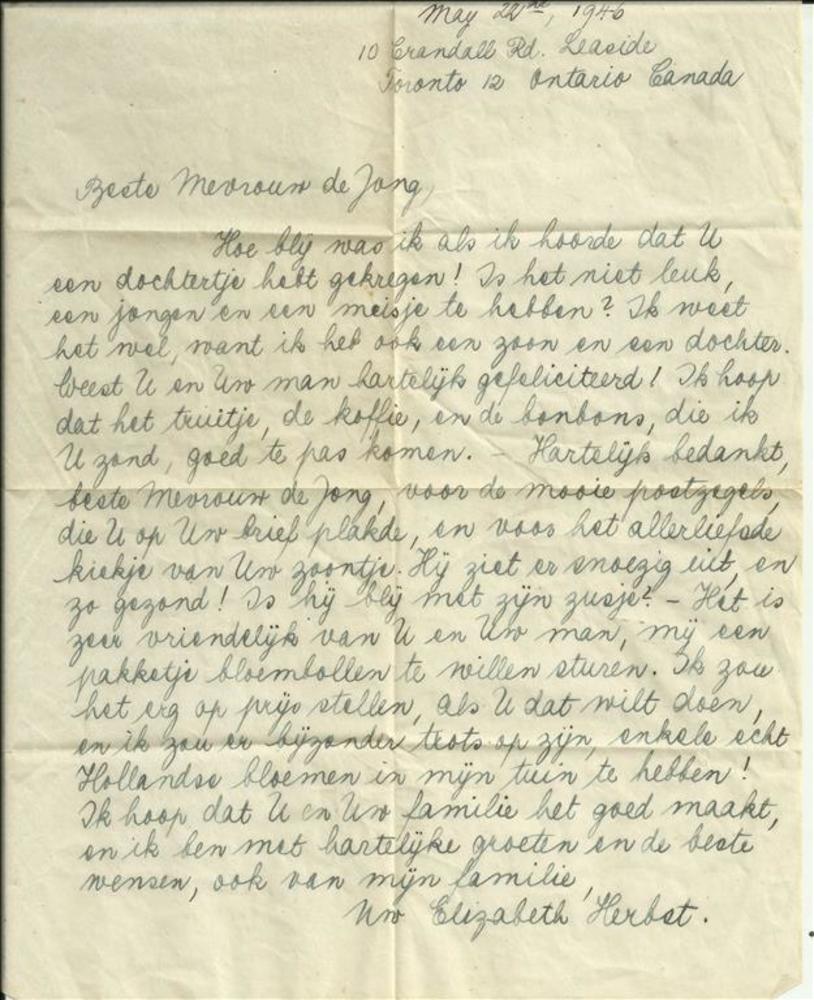 May 22nd, 1946
10 Crandall Rd. Leaside
Toronto 12 Ontario Canada
Beste Mevrouw de Jong,
Hoe blij was ik als ik hoorde dat U
een dochtertje hebt gekregen! Is het niet leuk,
een jongen en een meisje te hebben? Ik weet
het wel, want ik heb ook een zoon en een dochter.
Weest U en Uw man hartelijk gefeliciteerd! Ik hoop
dat het truitje, de koffie, en de bonbons, die ik
U zond, goed te pas komen. – Hartelijk bedankt,
beste Mevrouw de Jong, voor de mooie postzegels,
die U op Uw brief plakde, en voor het allerliefsde
kiekje van Uw zoontje. Hij ziet er snoezig uit, en
zo gezond! Is hij blij met zijn zusje? – Het is
zeer vriendelijk van U en Uw man, mij een
pakketje bloembollen te willen sturen. Ik zou
het erg op prijs stellen, als U dat wilt doen,
en ik zou er bijzonder trots op zijn, enkele echt
Hollandse bloemen in mijn tuin te hebben!
Ik hoop dat U en Uw familie het goed maakt,
en ik ben met hartelijke groeten en de beste
wensen, ook van mijn familie,
Uw Elizabeth Herbst.